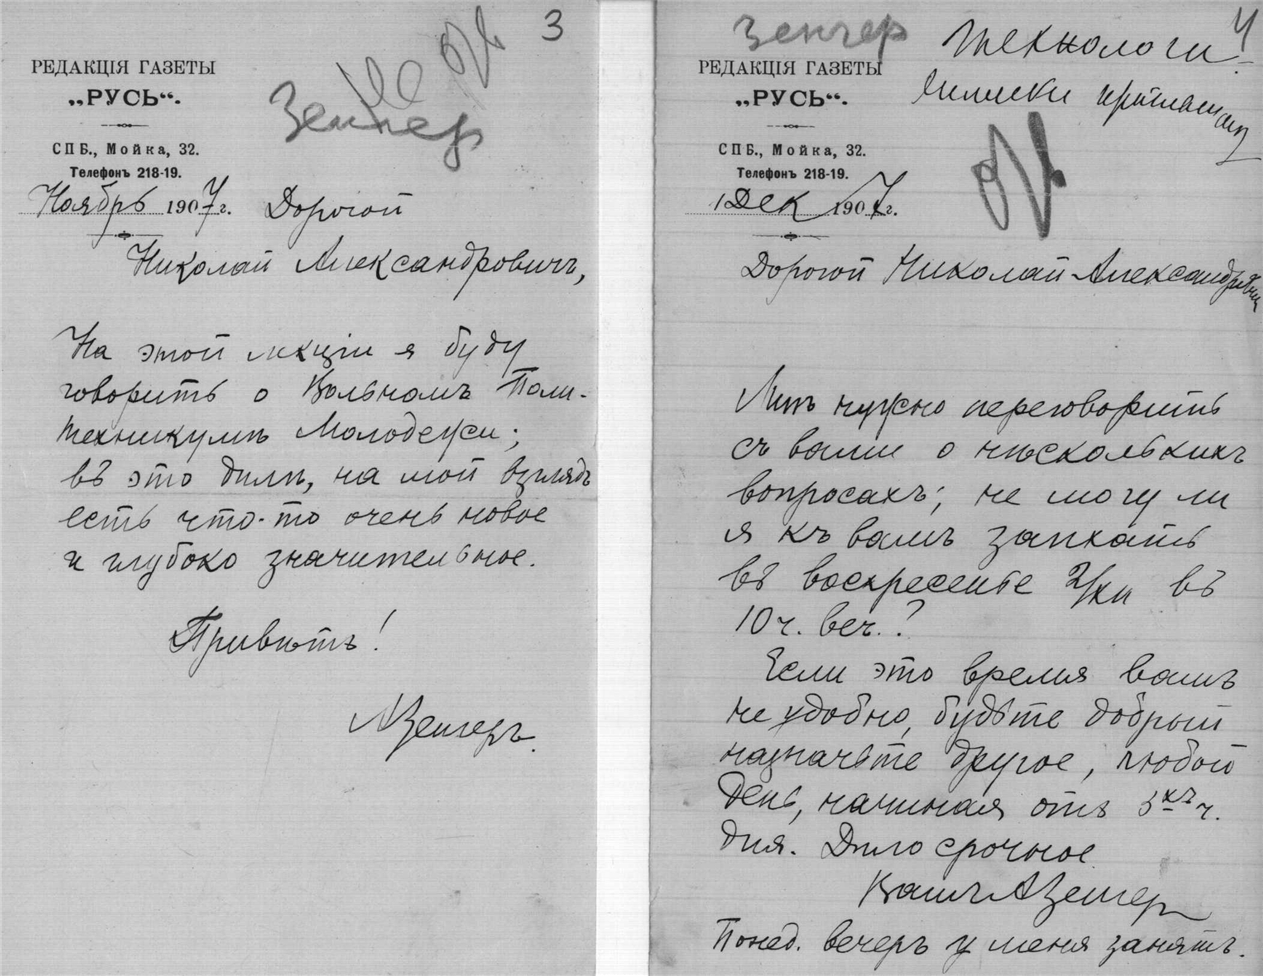 3
Зенгер
РЕДАКЦІЯ ГАЗЕТЫ
„РУСЬ“.
СПБ., Мойка, 32.
Телефонъ 218-19.
Ноябрь 1907 г.
Дорогой
Николай Александровичъ,
На этой лекціи я буду
говорить о Вольномъ Поли-
техникумѣ Молодежи;
въ это дѣлѣ, на мой взглядъ
есть что-то очень новое
и глубоко значительное.
Привѣтъ!
АЗенгеръ.
4
Зенгер
РЕДАКЦІЯ ГАЗЕТЫ
„РУСЬ“.
СПБ., Мойка, 32.
Телефонъ 218-19.
1 Дек 1907 г.
Дорогой Николай Александрович
Мнѣ нужно переговорить
съ вами о нѣсколькихъ
вопросахъ; не могу ли
я къ вамъ заѣхать
въ воскресенье 2/XII въ
10 ч. веч.?
Если это время вамъ
не удобно, будьте добрый
назначьте другое, любой
день, начиная отъ 5 ч.
дня. Дѣло срочное
Вашъ АЗенгер
Понед. вечеръ у меня занятъ.